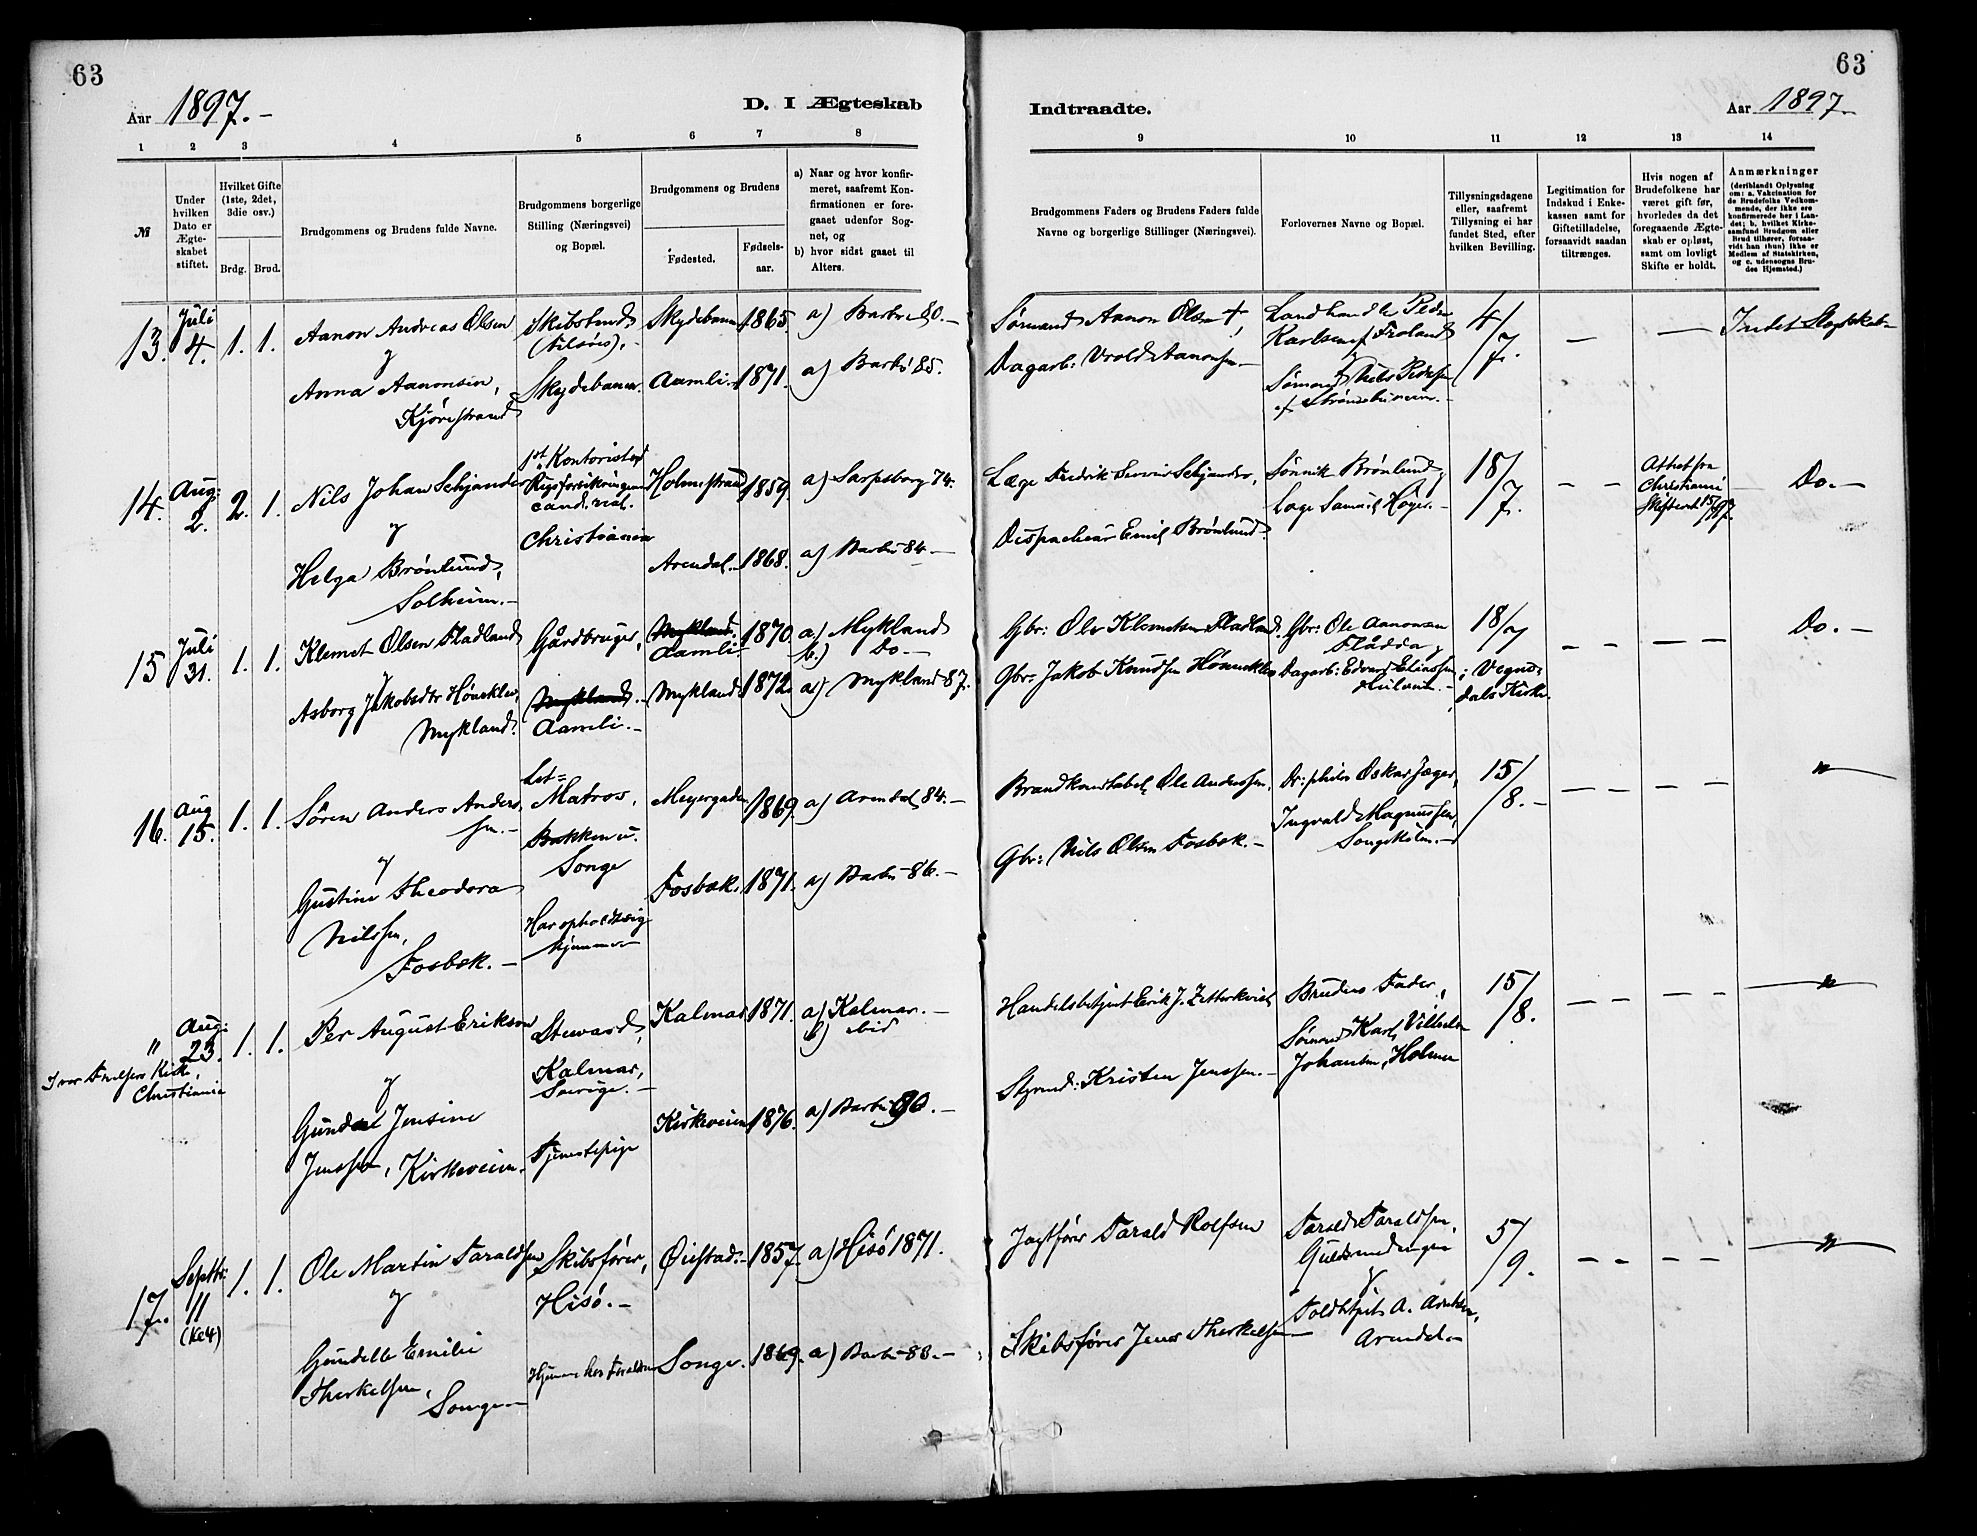 63
63
Aar 1897.-
D. I Ægteskab
Indtraadte.
Aar 1897.-
1 2 3 4 5 6 7 8
9 10 11 12 13 14
№
Under hvilken Dato er Ægteskabet stiftet.
Hvilket Gifte (1ste, 2det, 3die osv.)
Brdg.
Brud.
Brudgommens og Brudens fulde Navne.
Brudgommens borgerlige Stilling (Næringsvei) og Bopæl.
Brudgommens og Brudens
Fødested.
Fødselsaar.
a) Naar og hvor konfirmeret, saafremt Konfirmationen er foregaaet udenfor Sognet, og
b) hvor sidst gaaet til Alters.
Brudgommens Faders og Brudens Faders fulde Navne og borgerlige Stillinger (Næringsvei).
Forlovernes Navne og Bopæl.
Tillysningsdagene eller, saafremt Tillysning ei har fundet Sted, efter hvilken Bevilling.
Legitimation for Indskud i Enkekassen samt for Giftetilladelse, forsaavidt saadan tiltrænges.
Hvis nogen af Brudefolkene har været gift før, hvorledes da det foregaaende Ægteskab er opløst, samt om lovligt Skifte er holdt.
Anmærkninger (deriblandt Oplysning om: a. Vakcination for de Brudefolks Vedkommende, der ikke ere konfirmerede her i Landet; b. hvilket Kirkesamfund Brudgom eller Brud tilhører, forsaavidt han (hun) ikke er Medlem af Statskirken, og c. udensogns Brudes Hjemsted.)
13. Juli 4. 1. 1.
Aanon Andreas Olsen
og
Anna Aanonsen,
Kjørestrand
Skydebanen.
Skydebanen 1865. a) Barbu 80.-
Aamli. 1871. a) Barbu 85.
Sømand Aanon Olsen †,
Dagarb: Vrold Aanonsen.-
Landhandler Peder
Karlsen af Froland
og
Sømand Nils Pedersen
4/7.
Intet Slægtskab
14. Aug. 2. 2. 1.
Nils Johan Schjander
og
Helga Brønlund,
Solheim.-
1st Kontorist ved
Rigsforsikringen
cand. real.
Christiania
Holmestrand 1859. a) Sarpsborg 74.
Arendal. 1868. a) Barbu 84.-
Læge Fredrik Schjander,
Dispacheur Emil Brønlund.
Sønnik Brønlund og
Læge Samuel Høyer.-
18/7.
Attest fra
Christiania
Skifteret 15/7 97.
Do.-
15 Juli 31. 1. 1.
Klemet Olsen Fladland
og
Asborg Jakobsdtr Hønekleiv,
Mykland.
Gårdbruger,
Mykland.
Aamli.-
Mykland.
Aamli- 1870. a) Mykland
b.) Do-
Mykland 1872. a) Mykland 87.
Gbr: Ole Klemetsen Fladland.
Gbr: Jakob Knudsen Hønekleiv
Gbr: Ole Aanonsen
Flådda og
Dagarb: Edvard Eliassen
18/7
i Vegusdals Kirke.
Do.-
16. Aug 15. 1. 1.
Søren Anders Andersen.-
og
Gustine Theodora
Nilssen,
Fosbæk.-
Matros,
Bakken u.
Songe
Har opholdt sig
hjemme
Meyergaden 1869. a) Arendal, 84.-
Fosbæk. 1871. a) Barbu 86.-
Brandkonstabel, Ole Anderssen,
Gbr: Nils Olsen Fosbæk.-
Dr: philos Oskar Jæger,
Ingvald Magnussen,
Songekilen.-
15/8.-
"
" Aug: 23. 1. 1.
Ivar
Kirke,
Christiania
Per August Erikson
og
Jensine
Jenssen, Kirkeveien.
Steward,
Kalmar,
Sverige.-
Tjenestepige
Kalmar 1871. a) Kalmar.-
b) ibid
Kirkeveien 1876. a) Barbu 90.-
Handelsbetjent Erik J. Zetterkvist
Styrmd: Kristen Jenssen.-
Brudens Fader,
Sømand Karl Vilhelm
Johansen, Holmen
15/8.
"
17. Septbr: 11 (Kl 4) 1. 1.
Ole Martin Taraldsen
og
Gundelle Emilie
Therkelsen,
Songe-
Skibsfører,
Hisö.-
Hjemme hos Forældrene
Øiestad.- 1857. a) Hisö 1871.
Songe. 1869. a) Barbu 83.-
Jagtfører Tarald Rolfsen
Skibsfører Jens Therkelsen
Tarald Taraldsen,
og
Toldbetjent A.
Arendal-
5/9.
"